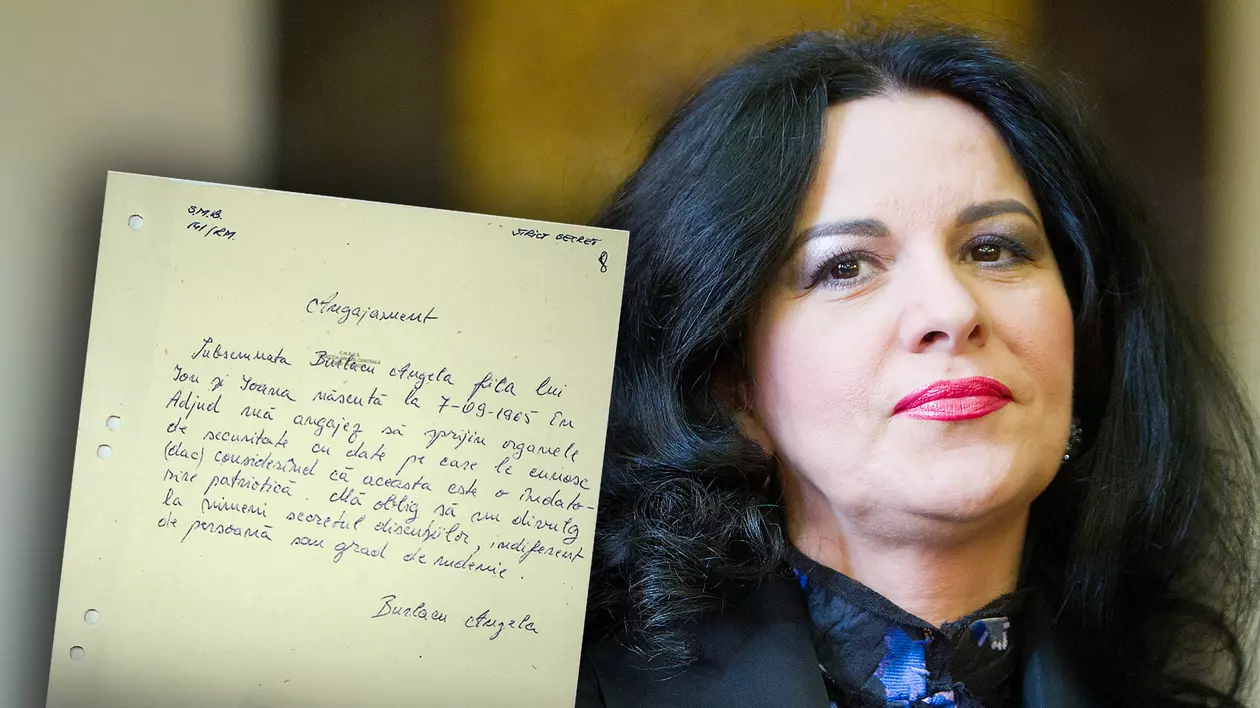 S.M.B.
141/RM.
STRICT SECRET
8
Angajament
Subsemnata Burlacu Angela fiica lui
Ion și Ioana născută la 7-09-1965 în
Adjud mă angajez să sprijin organele
de securitate cu date pe care le cunosc
(dac) considerînd că aceasta este o îndato-
rire patriotică. Mă oblig să nu divulg
la nimeni secretul discuțiilor, indiferent
de persoană sau grad de rudenie.
Burlacu Angela